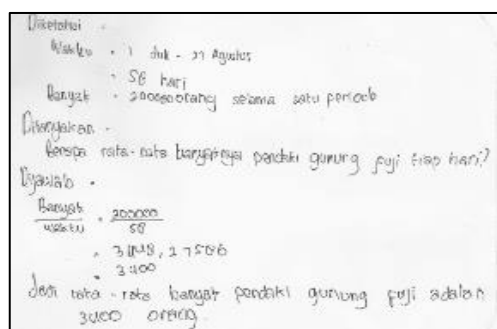 Diketahui :
Waktu = 1 Juli - 27 Agustus
= 58 hari
Banyak = 200000 orang selama satu periode
Ditanyakan :
Berapa rata-rata banyaknya pendaki gunung fuji tiap hari?
Dijawab :
Banyak / waktu = 200000 / 58
= 3448,27586
= 3400
Jadi rata-rata banyak pendaki gunung fuji adalah
3400 orang.